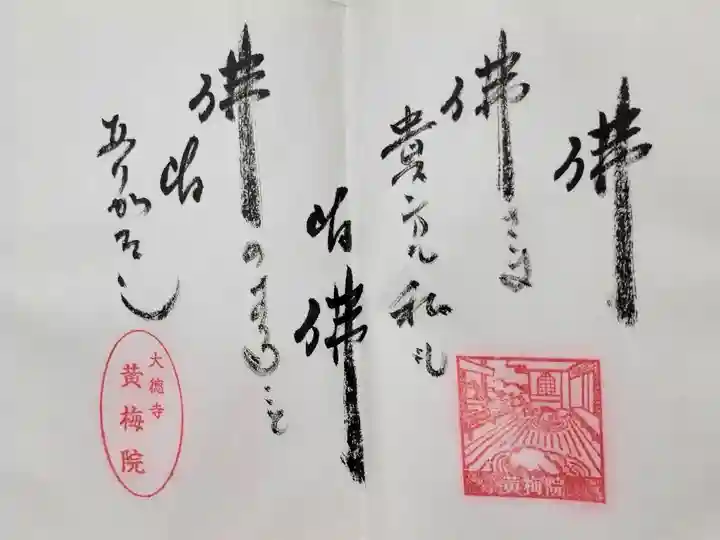 佛
佛さま
貴方も私も
皆佛
佛のすること
皆
ありがたし
黄梅院
大徳寺
黄梅院